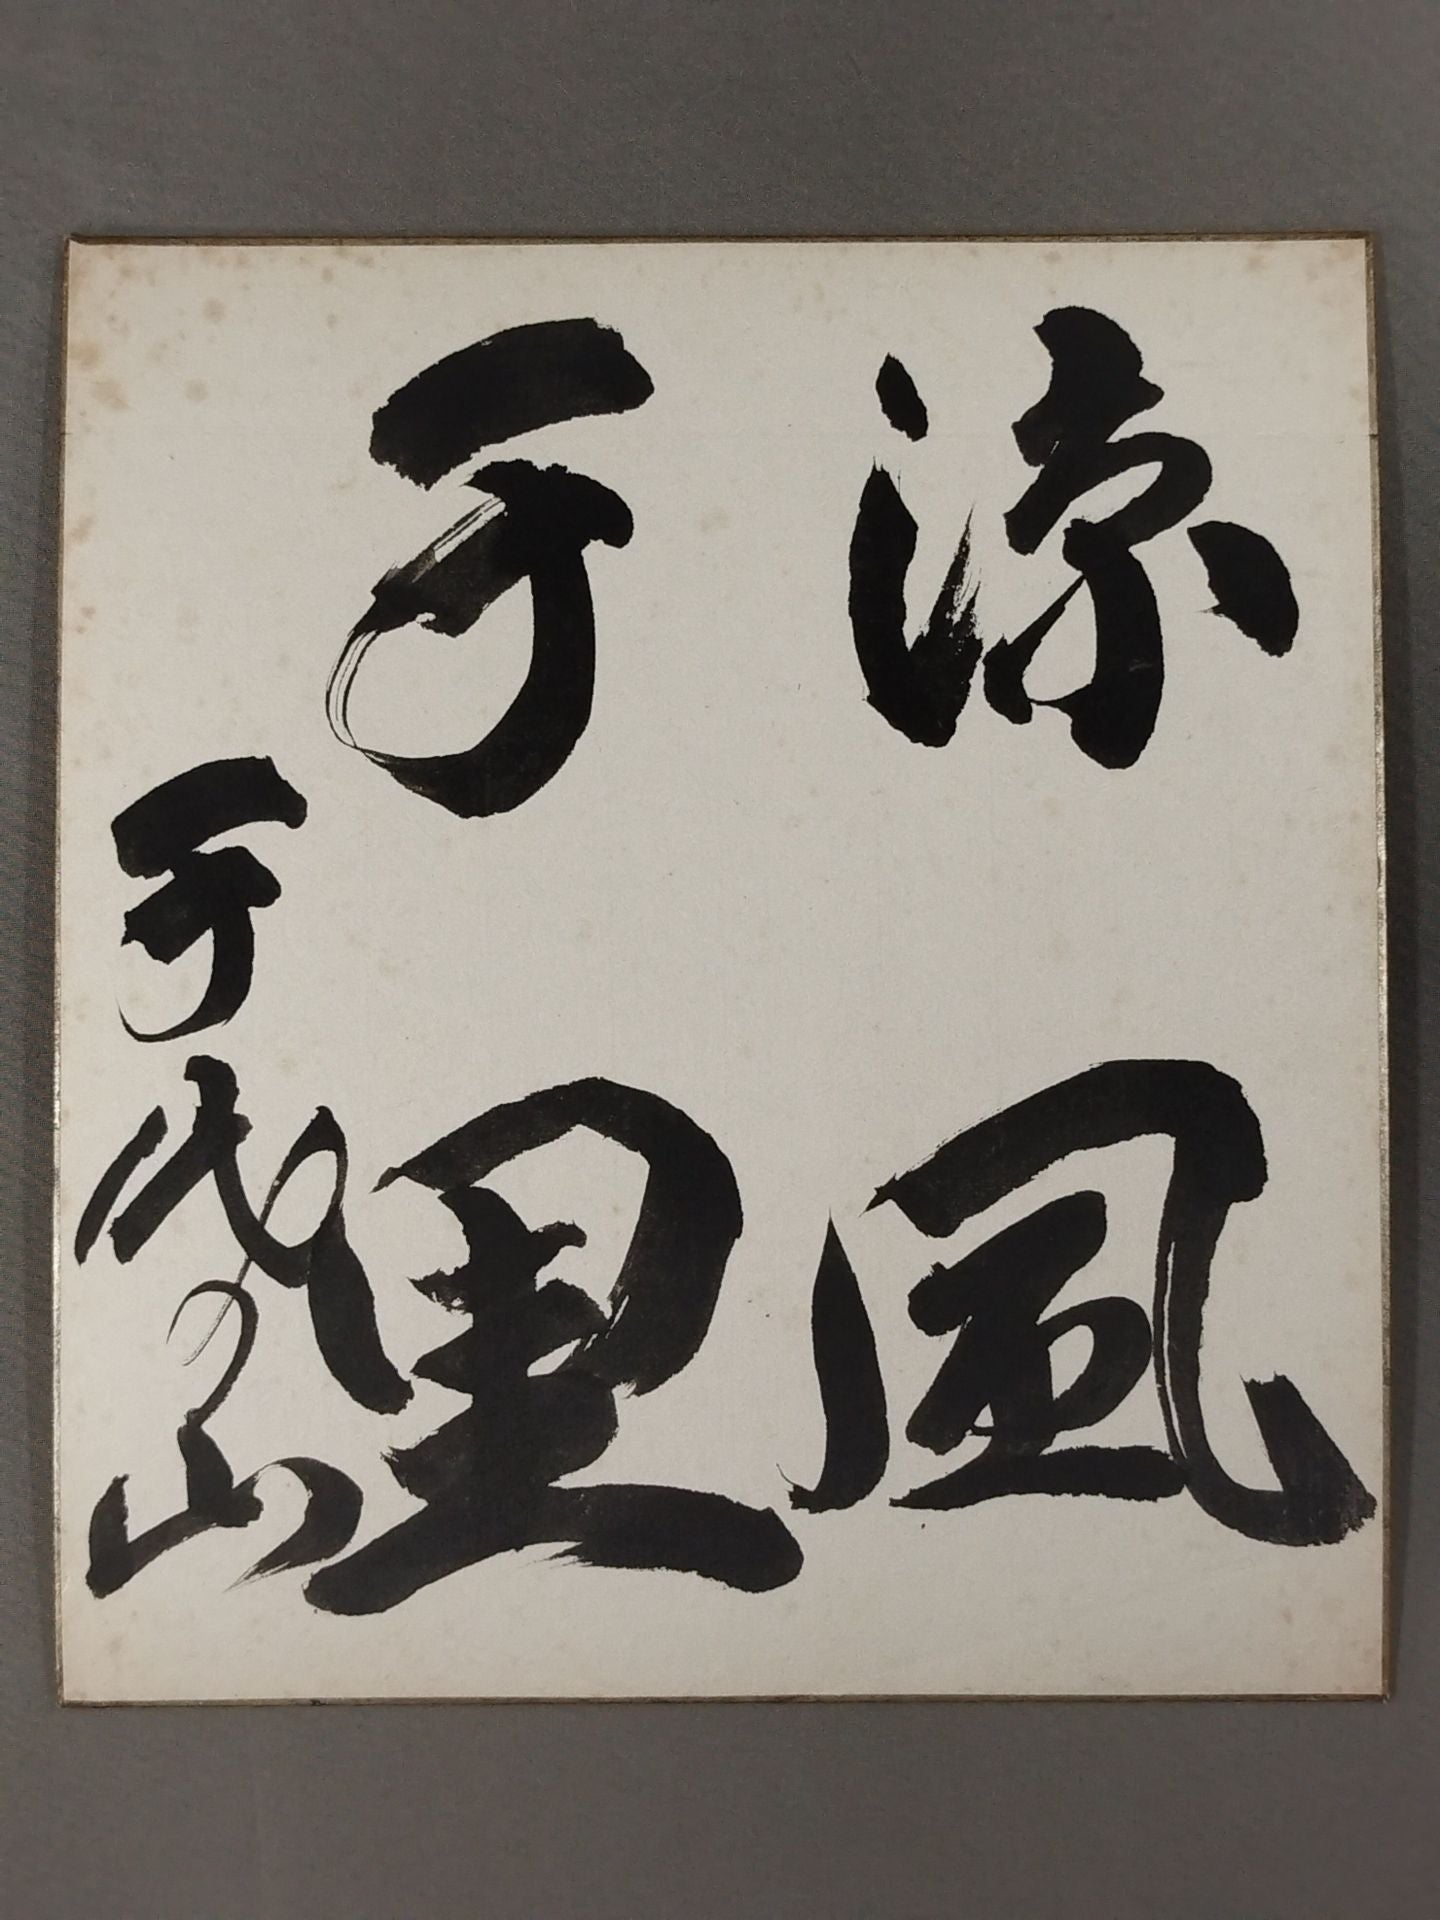 涼風
万里
千代の山